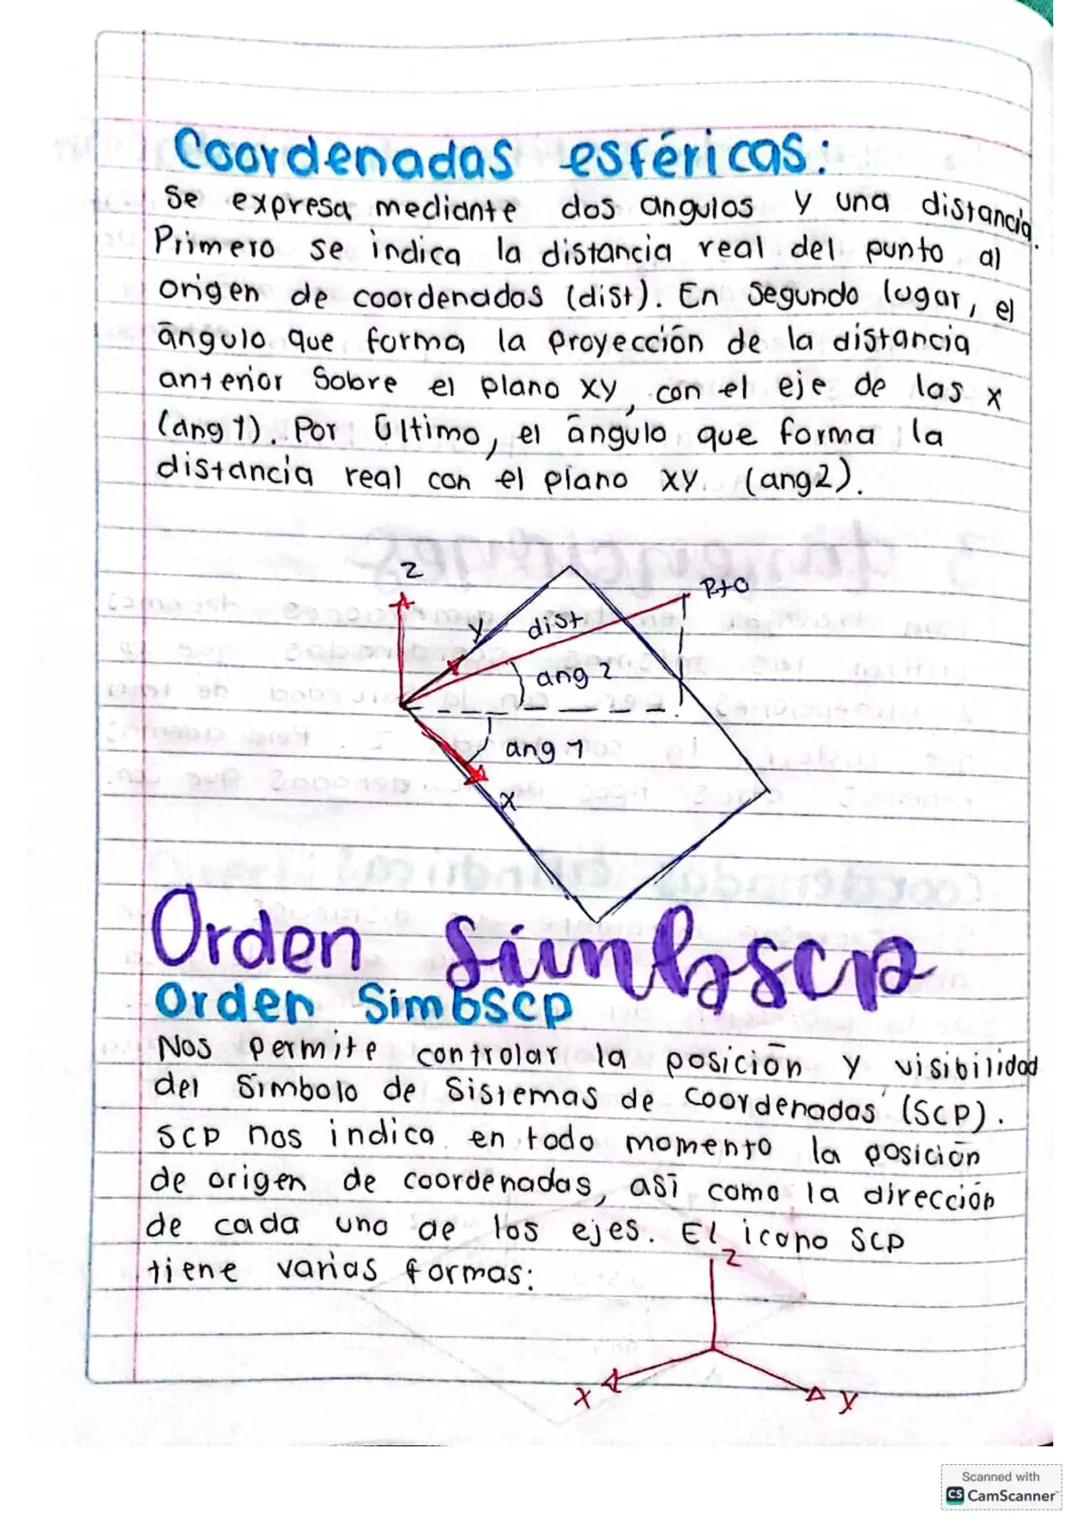 Coordenadas esféricas:
Se expresa mediante dos angulos y una distancia.
Primero se indica la distancia real del punto al
origen de coordenadas (dist). En Segundo lugar, el
ángulo que forma la proyección de la distancia
anterior Sobre el plano XY, con el eje de las x
(ang 1). Por último, el ángulo que forma la
distancia real con el plano XY. (ang2).
Z
Pto
Y
dist
ang 2
ang 1
X
Orden simbscp
Orden SimbScp
Nos permite controlar la posición y visibilidad
del Simbolo de Sistemas de Coordenadas (SCP).
SCP nos indica en todo momento la posición
de origen de coordenadas, así como la dirección
de cada uno de los ejes. El icono SCP
tiene varias formas:
Z
X
Y
Scanned with
CS CamScanner